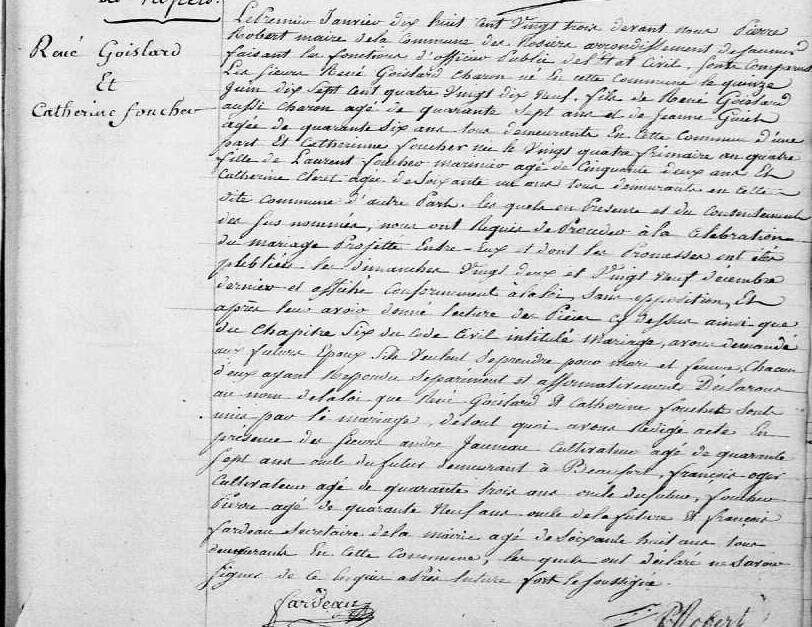 René Goislard
Et
Catherine foucher
Le Premier Janvier dix huit Cent Vingt trois devant nous Pierre
Robert maire de la Commune des Rosiers arrondissement de Saumur
faisant les fonctions d'officier Public de l'Etat Civil, sont Comparus
Les sieurs René Goislard Charon né En cette Commune le quinze
Juin dix Sept Cent quatre Vingt dix neuf, fils de René Goislard
aussi Charon agé de quarante Sept ans et de Jeanne
agée de quarante Six ans tous demeurants En Cette Commune d'une
part Et Catherinne foucher née le Vingt quatre frimaire an quatre
fille de Laurent foucher marinier agé de Cinquante deux ans Et
Catherine Cleret agée de Soixante un ans tous demeurants en Cette
dite Commune d'autre Part, les quels en Presense et du Consentement
des sus nommés, nous ont Requis de Proceder à la Celebration
du mariage Projetté Entre-Eux et dont les Promesses ont été
publiées les dimanches Vingt deux et Vingt Neuf décembre
dernier et affiché Conformement à la loi Sans opposition, Et
après leur avoir donné lecture des Pieces cy dessus ainsi que
du Chapitre Six du Code Civil intitulé Mariage, avons demandé
aux futurs Epoux S'ils Veulent Se prendre pour mari et femme, Chacun
d'eux ayant Repondu Séparément et affirmativement Declarons
au nom de la loi que René Goislard Et Catherine foucher Sont
unis par le mariage, de tout quoi avons Redigé acte En
présence des sieurs andré Jauneau Cultivateur agé de quarante
Sept ans oncle du futur demeurant à Beaufort, françois
Cultivateur agé de quarante trois ans oncle du futur, foucher
Pierre agé de quarante Neuf ans oncle de la future Et françois
fardeau Secretaire de la mairie agé de Soixante huit ans tous
demeurants En Cette Commune, les quels ont déclaré ne Savoir
Signer de ce Requis après lecture fort le Soussigné.
fardeau
P Robert